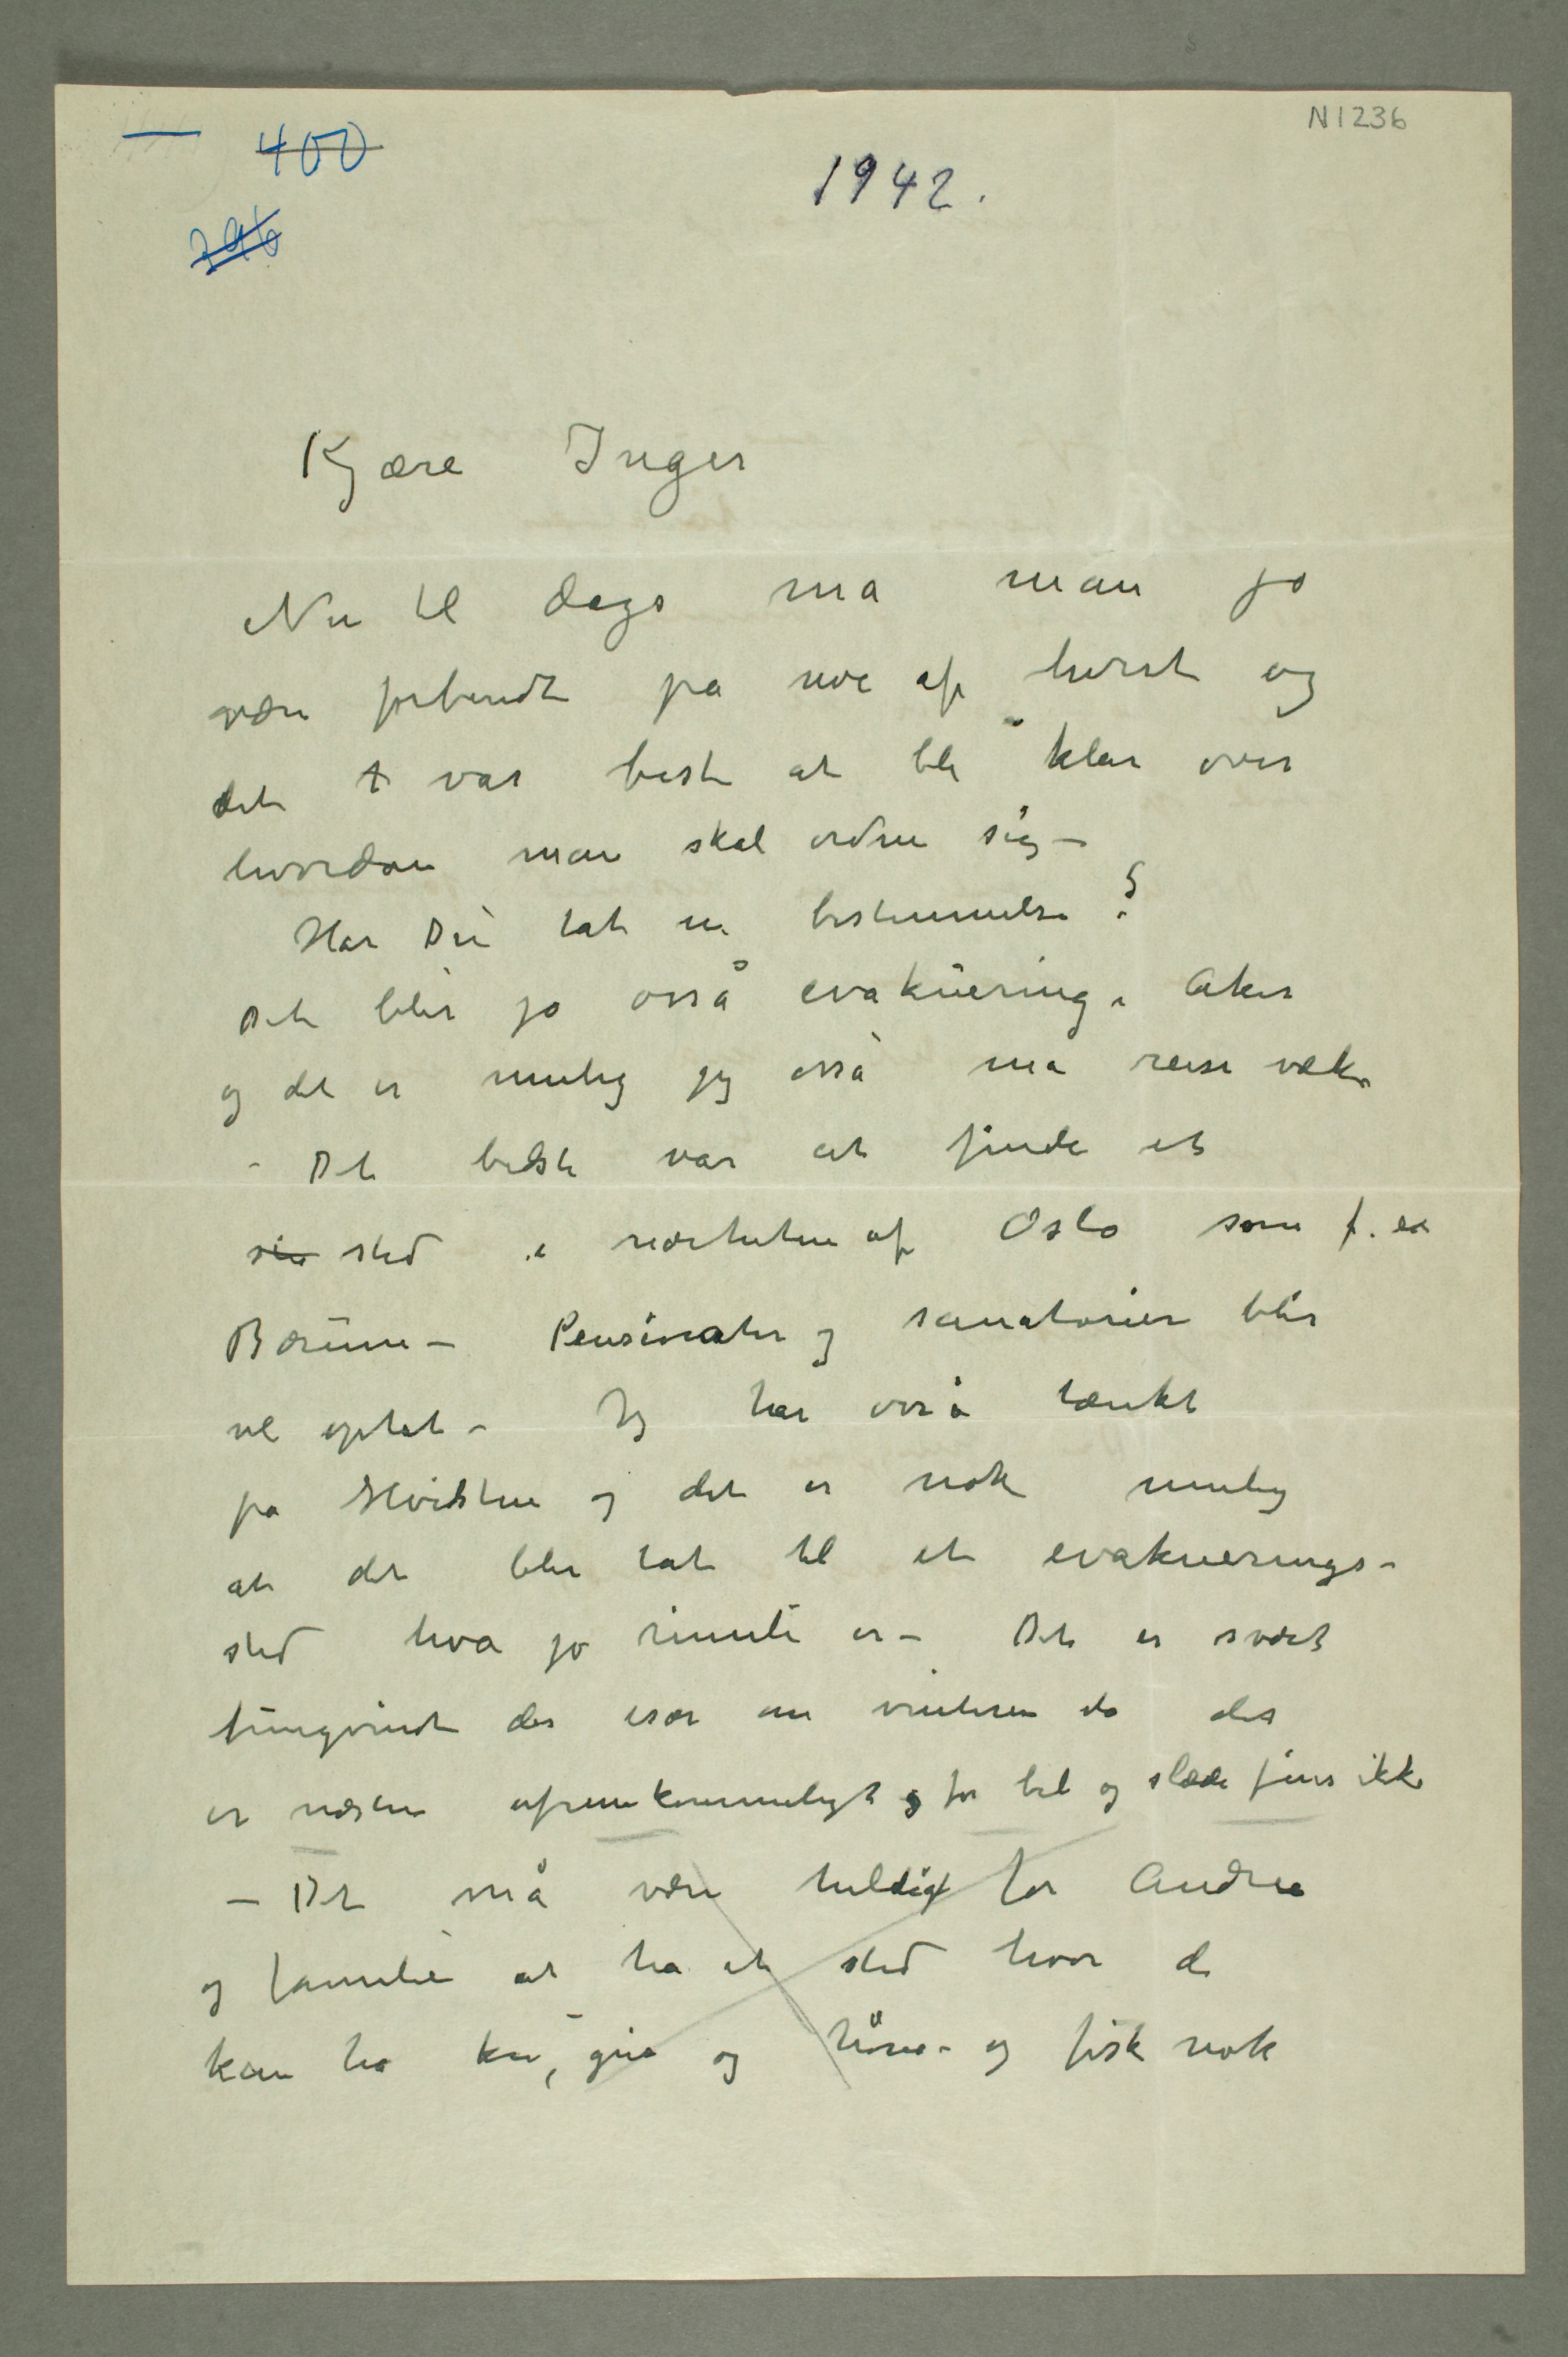 N1236
400
396
1942.
Kjære Inger
Nu til dags må man jo
være forberedt på noe af hvert og
det t var best at bli klar over
hvordan man skal ordne sig –
Har Du tat en bestemmelse?
Det blir jo osså evakuering i Aker
og det er mulig jeg osså må reise væk
– Det bedste var at finde et
sted i nærheten af Oslo som f. ex
Bærum – Pensionater og sanatorier blir
vel optat – Jeg har osså tænkt
på Hvidsten og det er nok mulig
at det blir tat til et evakuerings-
sted hva jo rimeli er – Det er svært
tungvindt der især om vinteren da det
er næsten ufremkommeligt og for bil og slæde fins ikke
– Det må være heldigt for Andrea
og familie at ha et sted hvor de
kan ha ku, gris og høns – og fisk nok